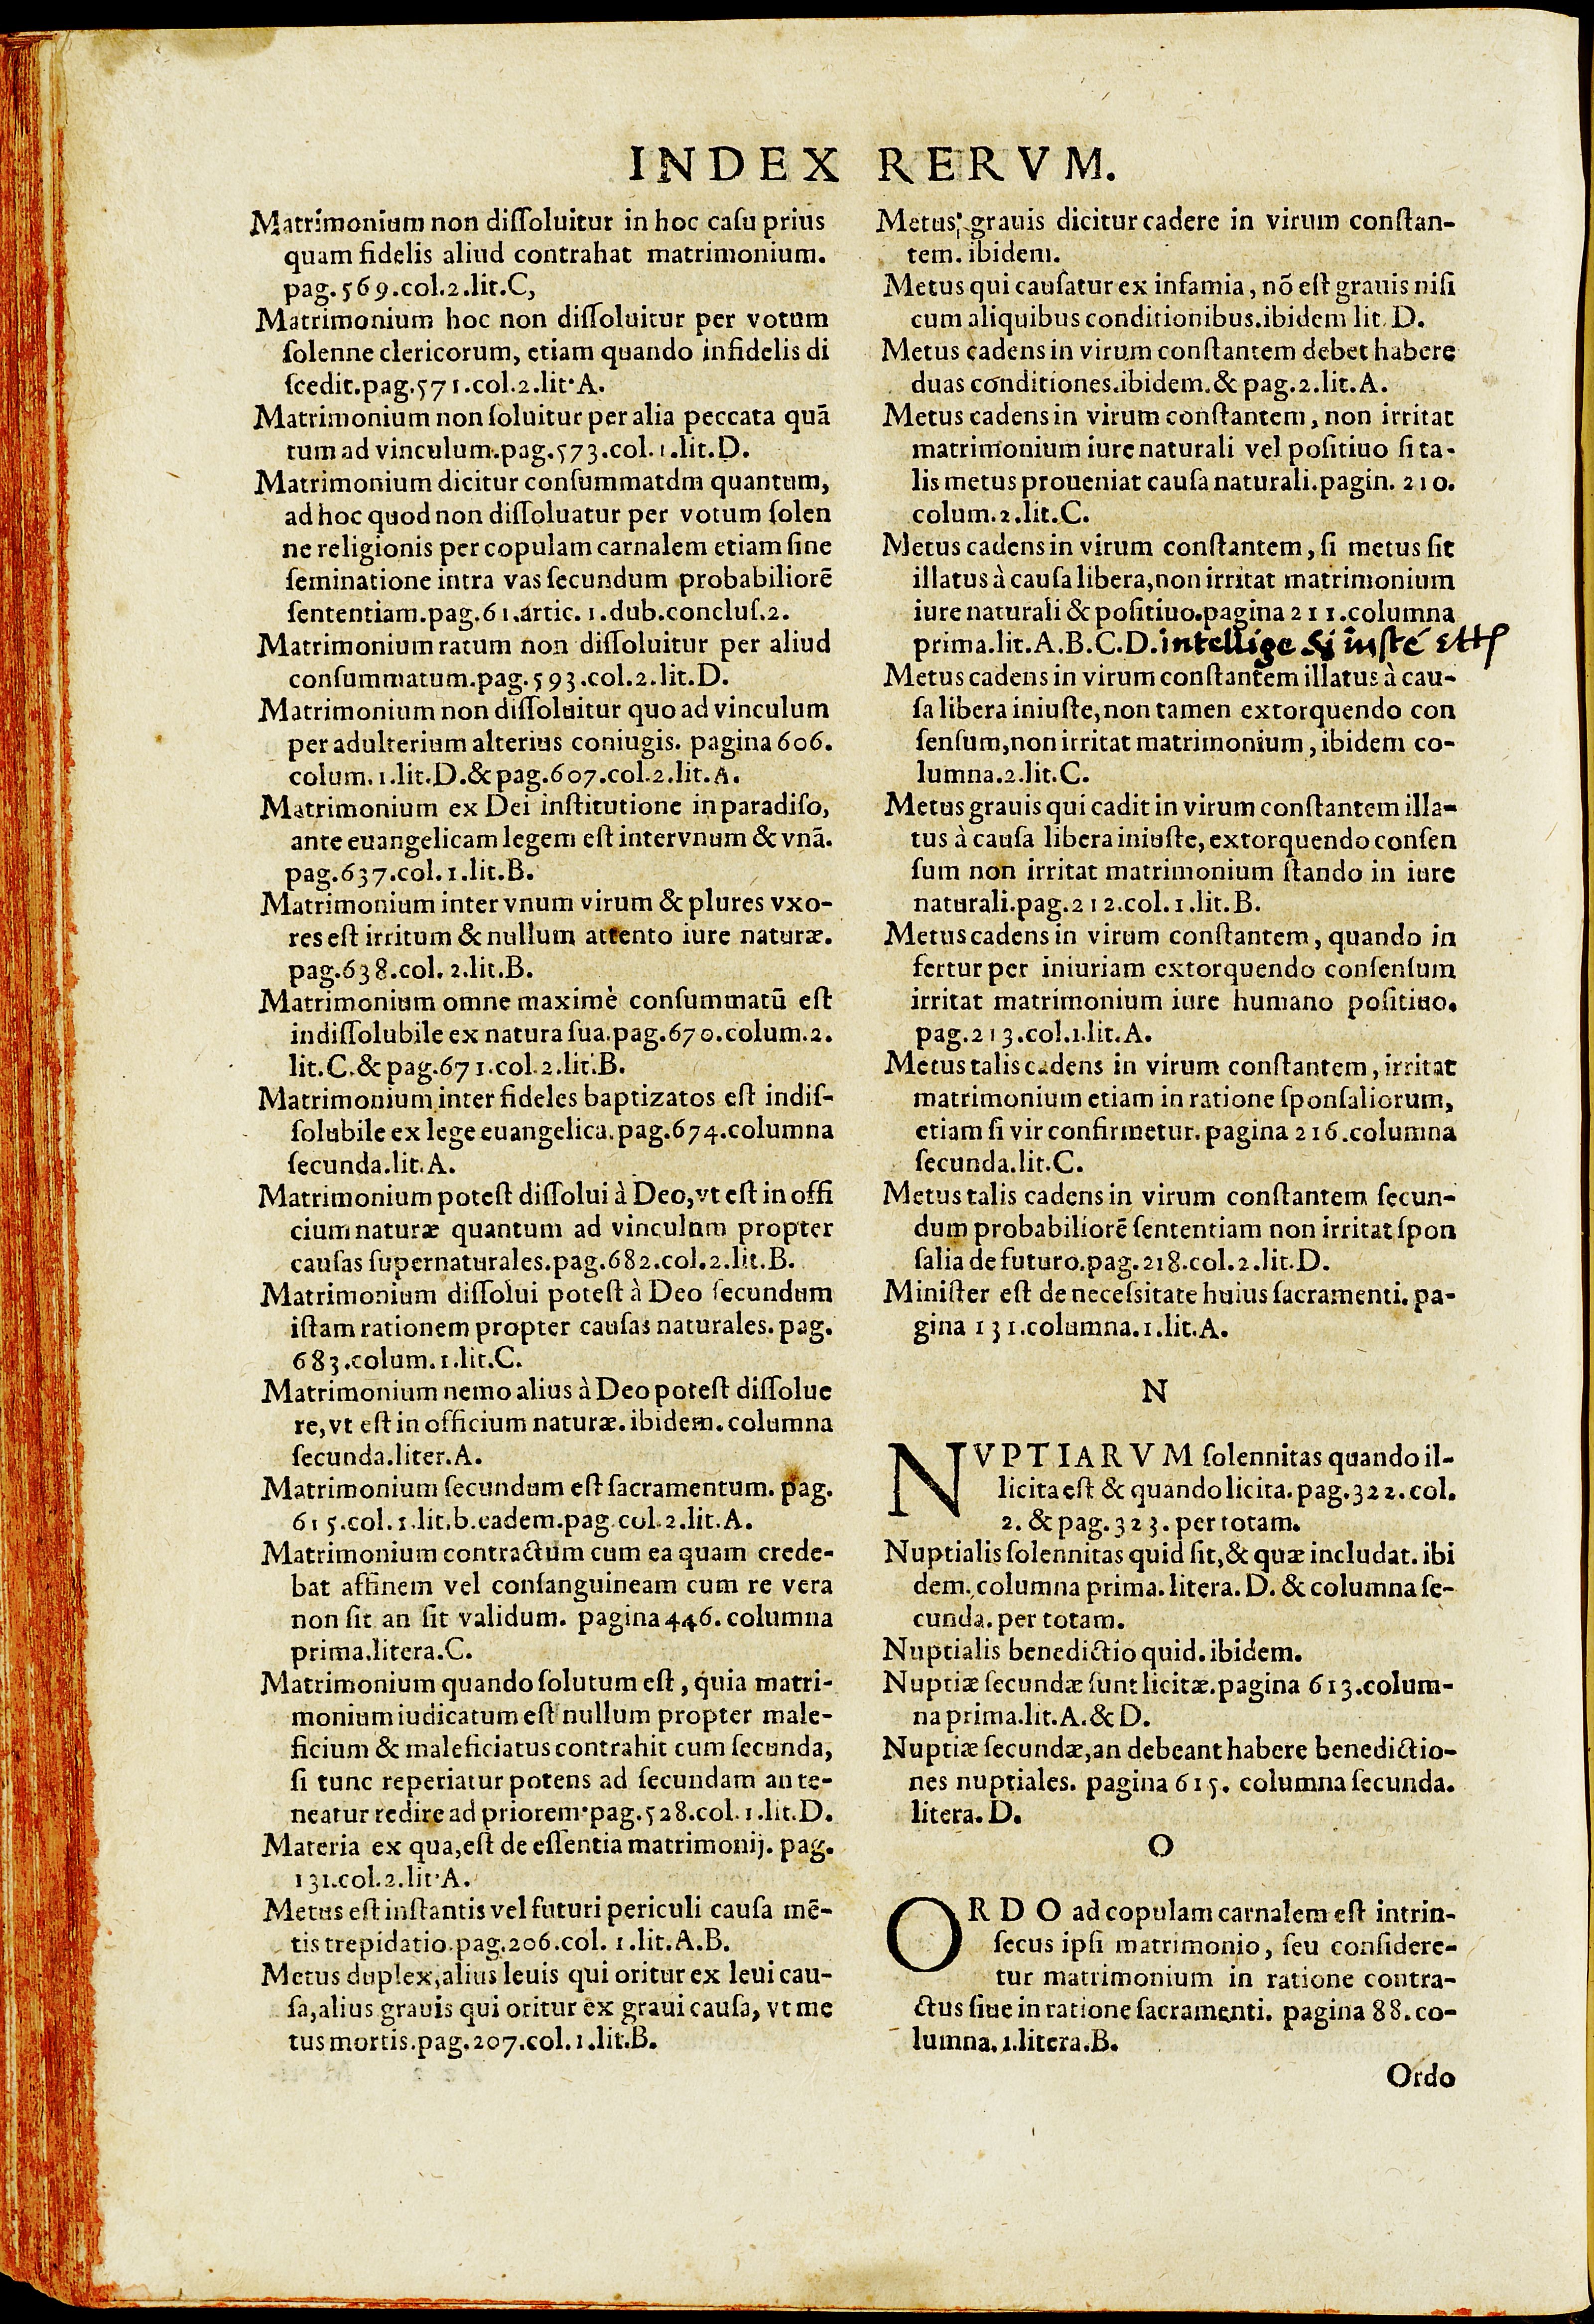 INDEX RERVM.
Matrimonium non diſſoluitur in hoc caſu prius
quam fidelis aliud contrahat matrimonium.
pag.569.col.2.lit.C,
Matrimonium hoc non diſſoluitur per votum
ſolenne clericorum, etiam quando infidelis di
ſcedit.pag.571.col.2.lit·A.
Matrimonium non ſoluitur per alia peccata quã
tum ad vinculum.pag.573.col.1.lit.D.
Matrimonium dicitur conſummatdm quantum,
ad hoc quod non diſſoluatur per votum ſolen
ne religionis per copulam carnalem etiam ſine
ſeminatione intra vas ſecundum probabiliorẽ
ſententiam.pag.61.artic.1.dub.concluſ.2.
Matrimonium ratum non diſſoluitur per aliud
conſummatum.pag.593.col.2.lit.D.
Matrimonium non diſſoluitur quo ad vinculum
per adulterium alterius coniugis. pagina 606.
colum.1.lit.D.& pag.607.col.2.lit.A.
Matrimonium ex Dei inſtitutione in paradiſo,
ante euangelicam legem eſt inter vnum & vnã.
pag.637.col.1.lit.B.
Matrimonium inter vnum virum & plures vxo-
res eſt irritum & nullum attento iure naturæ.
pag.638.col.2.lit.B.
Matrimonium omne maximè conſummatũ eſt
indiſſolubile ex natura ſua.pag.670.colum.2.
lit.C.& pag.671.col.2.lit.B.
Matrimonium inter fideles baptizatos eſt indiſ-
ſolubile ex lege euangelica.pag.674.columna
ſecunda.lit.A.
Matrimonium poteſt diſſolui à Deo,vt eſt in offi
cium naturæ quantum ad vinculum propter
cauſas ſupernaturales.pag.682.col.2.lit.B.
Matrimonium diſſolui poteſt à Deo ſecundum
iſtam rationem propter cauſas naturales. pag.
683.colum.1.lit.C.
Matrimonium nemo alius à Deo poteſt diſſolue
re, vt eſt in officium naturæ. ibidem. columna
ſecunda.liter.A.
Matrimonium ſecundum eſt ſacramentum. pag.
615.col.1.lit.b.eadem.pag.col.2.lit.A.
Matrimonium contractum cum ea quam crede-
bat affinem vel conſanguineam cum re vera
non ſit an ſit validum. pagina 446. columna
prima.litera.C.
Matrimonium quando ſolutum eſt, quia matri-
monium iudicatum eſt nullum propter male-
ficium & maleficiatus contrahit cum ſecunda,
ſi tunc reperiatur potens ad ſecundam an te-
neatur redire ad priorem·pag.528.col.1.lit.D.
Materia ex qua,eſt de eſſentia matrimonij. pag.
131.col.2.lit·A.
Metus eſt inſtantis vel futuri periculi cauſa mẽ-
tis trepidatio.pag.206.col.1.lit.A.B.
Metus duplex,alius leuis qui oritur ex leui cau-
ſa,alius grauis qui oritur ex graui cauſa, vt me
tus mortis.pag.207.col.1.lit.B.
Metus grauis dicitur cadere in virum conſtan-
tem. ibidem.
Metus qui cauſatur ex infamia, nõ eſt grauis niſi
cum aliquibus conditionibus.ibidem lit.D.
Metus cadens in virum conſtantem debet habere
duas conditiones.ibidem.& pag.2.lit.A.
Metus cadens in virum conſtantem, non irritat
matrimonium iure naturali vel poſitiuo ſi ta-
lis metus proueniat cauſa naturali.pagin. 210.
colum.2.lit.C.
Metus cadens in virum conſtantem, ſi metus ſit
illatus à cauſa libera,non irritat matrimonium
iure naturali & poſitiuo.pagina 211.columna
prima.lit.A.B.C.D.intellige si iuſté
Metus cadens in virum conſtantem illatus à cau-
ſa libera iniuſte,non tamen extorquendo con
ſenſum,non irritat matrimonium, ibidem co-
lumna.2.lit.C.
Metus grauis qui cadit in virum conſtantem illa-
tus à cauſa libera iniuſte, extorquendo conſen
ſum non irritat matrimonium ſtando in iure
naturali.pag.212.col.1.lit.B.
Metus cadens in virum conſtantem, quando in
fertur per iniuriam extorquendo conſenſum
irritat matrimonium iure humano poſitiuo.
pag.213.col.1.lit.A.
Metus talis cadens in virum conſtantem, irritat
matrimonium etiam in ratione ſponſaliorum,
etiam ſi vir confirmetur. pagina 216.columna
ſecunda.lit.C.
Metus talis cadens in virum conſtantem ſecun-
dum probabiliorẽ ſententiam non irritat ſpon
ſalia de futuro.pag.218.col.2.lit.D.
Miniſter eſt de neceſsitate huius ſacramenti. pa-
gina 131.columna.1.lit.A.
N
NVPTIARVM ſolennitas quando il-
licita eſt & quando licita. pag.322.col.
2. & pag.323. per totam.
Nuptialis ſolennitas quid ſit,& quæ includat. ibi
dem. columna prima. litera. D. & columna ſe-
cunda. per totam.
Nuptialis benedictio quid. ibidem.
Nuptiæ ſecundæ ſunt licitæ.pagina 613.colum-
na prima.lit.A.& D.
Nuptiæ ſecundæ,an debeant habere benedictio-
nes nuptiales. pagina 615. columna ſecunda.
litera. D.
O
ORDO ad copulam carnalem eſt intrin-
ſecus ipſi matrimonio, ſeu conſidere-
tur matrimonium in ratione contra-
ctus ſiue in ratione ſacramenti. pagina 88.co-
lumna.1.litera.B.
Ordo